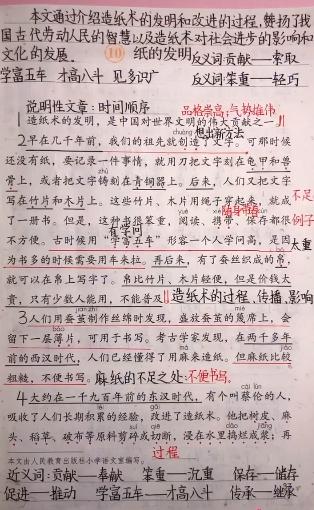 本文通过介绍造纸术的发明和改进的过程,赞扬了我
国古代劳动人民的智慧以及造纸术对社会进步的影响和
文化的发展。 ⑩ 纸的发明 反义词:贡献——索取
学富五车 才高八斗 见多识广 反义词:笨重——轻巧
说明性文章:时间顺序 品格崇高;气势雄伟
1造纸术的发明,是中国对世界文明的伟大贡献之一。
chuàng 想出新方法
2早在几千年前,我们的祖先就创造了文字。可那时候
还没有纸,要记录一件事情,就用刀把文字刻在龟甲和兽
zhù
骨上,或者把文字铸刻在青铜器上。后来,人们又把文字
写在竹片和木片上。这些竹片、木片用绳子穿起来,就成 不足
yuè xié 随身带 cún
了一册书。但是,这种书很笨重,阅读、携带、保存都很 例子
有学问
不方便。古时候用“学富五车”形容一个人学问高,是因 太重
为书多的时候需要用车来拉。再后来,有了蚕丝织成的帛,
就可以在帛上写字了。帛比竹片、木片轻便,但是价钱太
贵,只有少数人能用,不能普及。 造纸术的过程、传播、影响
jiǎn zhì
3人们用蚕茧制作丝绵时发现,盛放蚕茧的篾席上,会
báo
留下一层薄片,可用于书写。考古学家发现,在两千多年
前的西汉时代,人们已经懂得了用麻来造纸。但麻纸比较
cāo
粗糙,不便书写。 麻纸的不足之处:不便书写。
cài lún
4大约在一千九百年前的东汉时代,有个叫蔡伦的人,
gǎi
吸收了人们长期积累的经验,改进了造纸术。他把树皮、麻
suì qiē
头、稻草、破布等原料剪碎或切断,浸在水里捣烂成浆;再
过程
本文由人民教育出版社小学语文室编写。
近义词:贡献——奉献 笨重——沉重 保存——储存
促进——推动 学富五车——才高八斗 传承——继承